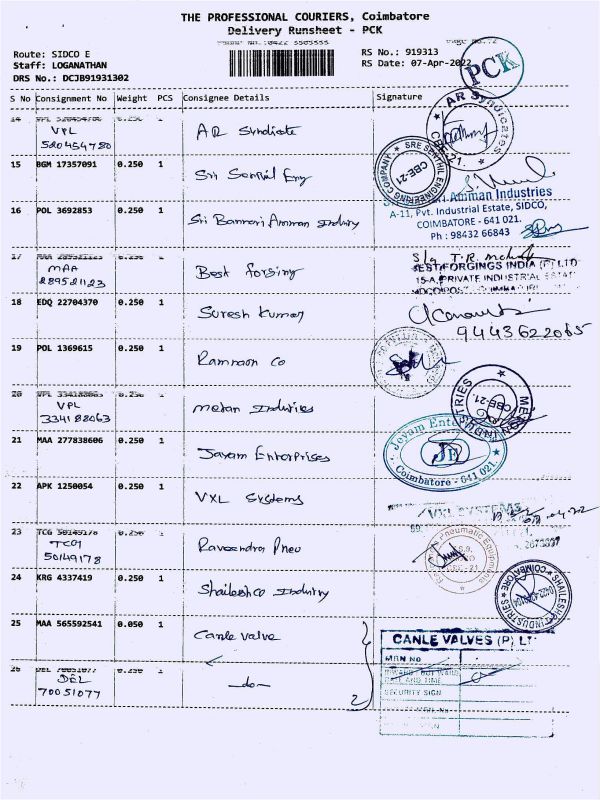 THE PROFESSIONAL COURIERS, Coimbatore
Delivery Runsheet - PCK
Route: SIDCO E
Staff: LOGANATHAN
DRS No.: DCJB91931302
RS No.: 919313
RS Date: 07-Apr-2022
PCK
S No Consignment No Weight PCS Consignee Details Signature
14
VPL
520454780
AR Syndicate
AR Syndicates
CBE-21.
15 BGM 17357091 0.250 1 Sri Senthil Eng
SRE SENTHIL ENGINEERING COMPANY
CBE-21
16 POL 3692853 0.250 1 Sri Bannari Amman Industry
Amman Industries
A-11, Pvt. Industrial Estate, SIDCO,
COIMBATORE - 641 021.
Ph : 98432 66843
17
MAA
289521123
Best forging
BEST FORGINGS INDIA (P) LTD
15-A, PRIVATE INDUSTRIAL ESTATE
18 EDQ 22704370 0.250 1 Suresh Kumar
9443622065
19 POL 1369615 0.250 1
20
VPL
334188063
CBE-21.
21 MAA 277838606 0.250 1 Jayam Enterprises
Jayam Enterprises
JE
Coimbatore - 641 021.
22 APK 1250054 0.250 1 VXL Systems
VXL SYSTEMS
23 TCG 50149178 0.250 1
TCG
50149178
Raveendra Pneu
Pneumatic Equipments
24 KRG 4337419 0.250 1 Shaileshco Industry
COIMBATORE
INDUSTRIES
25 MAA 565592541 0.050 1 Canle valve
CANLE VALVES (P) LT
MRN NO
DATE AND TIME
SECURITY SIGN
26 DEL 70051077 0.250 1
DEL
70051077
-do-